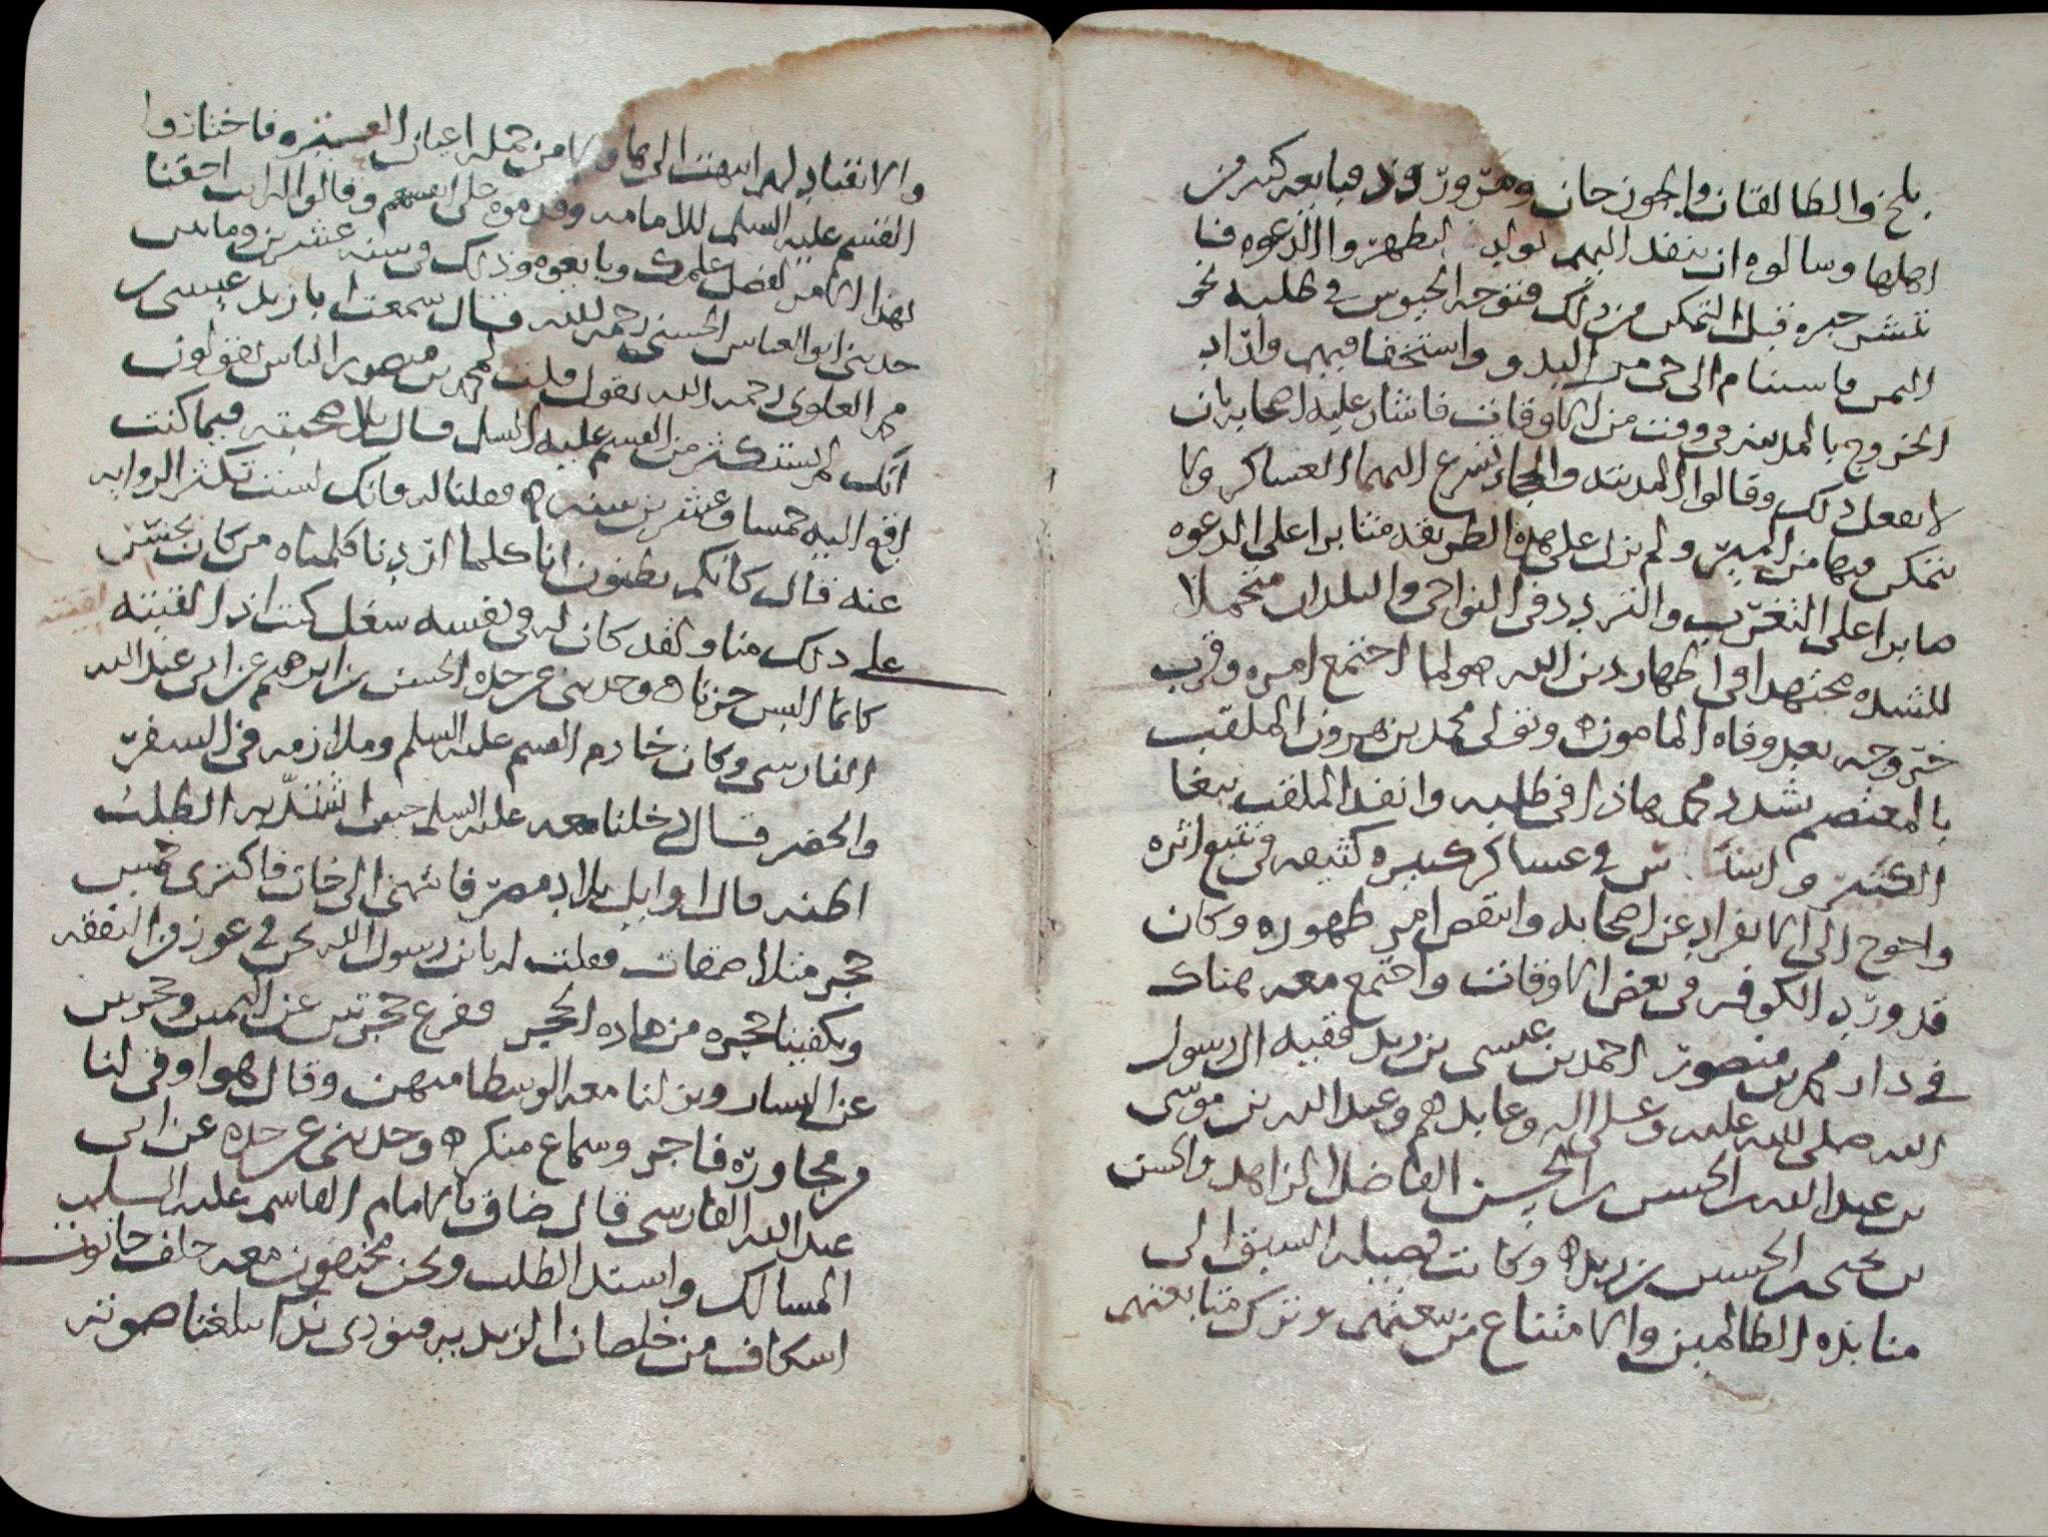 بلخ والطالقان والجوزجان ومرورود فبايعه كثير من
اهلها وسالوه ان ينفذ اليهم بولده ليظهروا الدعوه فبا
نتشر خبره قبل التمكن من ذلك فتوجه الجيوش في طلبه نحو
اليمن فاستنام الى حي من البدو واستخفا فيهم واراد
الخروج بالمدينه في وقت من الاوقات فاشار عليه اصحابه بان
لا يفعل ذلك وقالوا المدينه والحجاز تسرع اليهما العساكر ولا
يتمكن فيها من المير ولم يزل على هذه الطريقه مثابرا على الدعوه
صابرا على التغرب والتردد في النواحي والبلدان متحملا
للشده مجتهدا في اظهار دين الله ه ولما اجتمع امره وقرب
خروجه بعد وفاه المامون ه وتولى محمد بن هرون الملقب
بالمعتصم شدد محمد هاذا في طلبه وانفذ الملقب ببغا
الكبير و في عساكر كبيره كثيفه في تتبع اثره
واحوج الى الانفراد عن اصحابه وانتقض امر ظهوره وكان
قد ورد الكوفه في بعض الاوقات واجتمع معه هناك
في دار محمد بن منصور احمد بن عيسى بن زيد فقيه ال رسول
الله صلى الله عليه وعلى اله وعابدهم وعبد الله بن موسى
بن عبد الله بن الحسن بن الحسن الفاضل الزاهد والحسن
بن يحيى بن الحسين بن زيد ه وكانت فضيله السبق الى
منابذه الظالمين والامتناع من بيعتهم وترك متابعتهم
والانقياد لهم انتهت الى هاولا من جمله اعيان العتره فاختاروا
القسم عليه السلم للامامه وقدموه على انفسهم وقالوا له انت احقنا
بهذا الامر لفضل علمك وبايعوه وذلك في سنه عشرين ومايتين
حدثني ابو العباس الحسني رحمه الله قال سمعت ابا زيد عيسى بن
محمد العلوي رحمه الله يقول قلت لمحمد بن منصور الناس يقولون
انك لم تستكثر من القسم عليه السلم قال بلا صحبته فيما كنت
اقع اليه خمسا وعشرين سنه ه فقلنا له فانك لست تكثر الروايه
عنه قال كانكم تظنون انا كلما اردنا كلمناه من كان يجتري
على ذلك منا ولقد كان له في نفسه شغل كنت اذا لقيته
كانما البس حزنا ه وحدثني عن جده الحسن بن ابرهيم عن ابي عبد الله
الفارسي وكان خادم القسم عليه السلم وملازمه في السفر
والحضر قال دخلنا معه عليه السلم حين اشتد به الطلب
اظنه قال اوايل بلاد مصر فانتهى الى خان فاكترى خمس
حجر متلاصقات فقلت له يابن رسول الله نحن في عوز من النفقه
وتكفينا حجره من هاذه الحجر ففرغ حجرتين عن اليمين وحجرتين
عن اليسار ونزلنا معه الوسطا منهن وقال هو اوقى لنا
من مجاوره فاجر وسماع منكر ه وحدثني عن جده عن ابي
عبد الله الفارسي قال ضاق بالامام القاسم عليه السلم
المسالك واشتد الطلب ونحن مختفون معه خلف حانوت
اسكاف من خلصان الزيديه فنودي ندا يبلغنا صوته